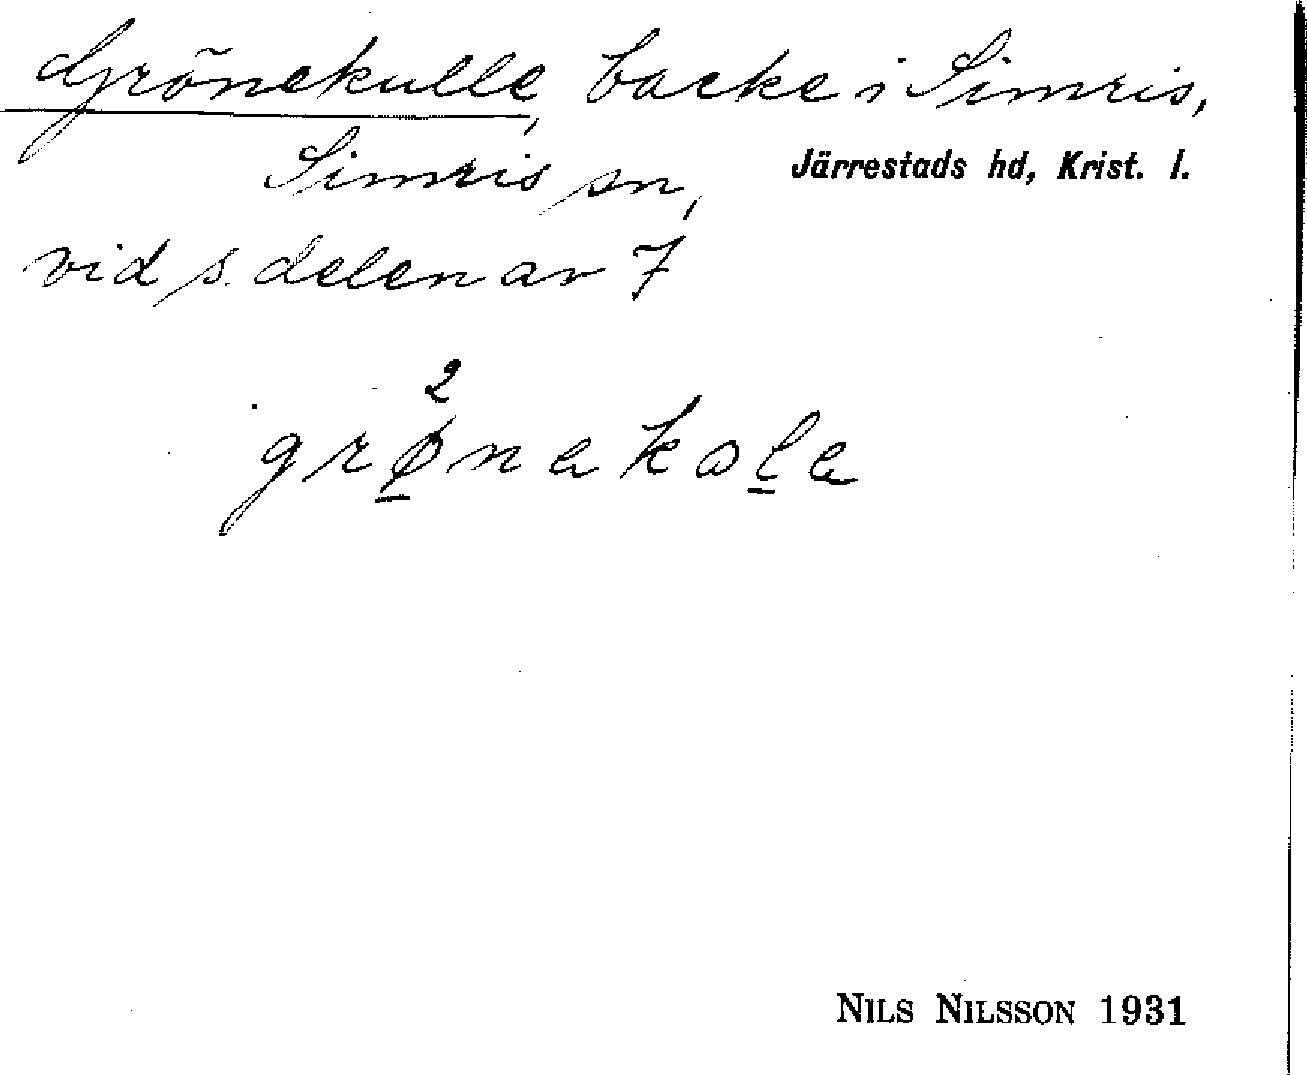 Grönekulle, backe i Simris,
Simris sn, Järrestads hd, Krist. l.
vid s. delen av 7
2
grønekole
NILS NILSSON 1931